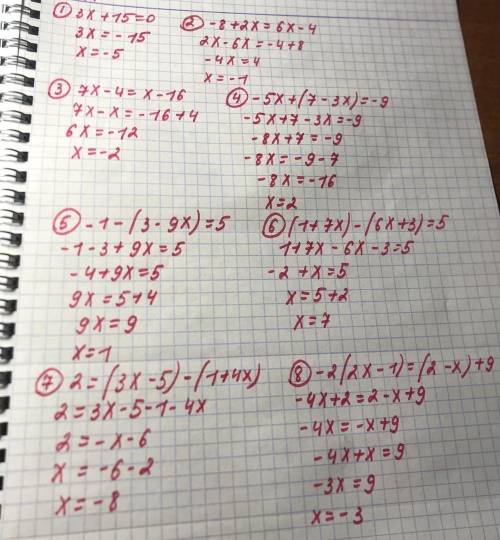 ① 3x+15=0
3x=-15
x=-5
② -8+2x=6x-4
2x-6x=-4+8
-4x=4
x=-1
③ 7x-4=x-16
7x-x=-16+4
6x=-12
x=-2
④ -5x+(7-3x)=-9
-5x+7-3x=-9
-8x+7=-9
-8x=-9-7
-8x=-16
x=2
⑤ -1-(3-9x)=5
-1-3+9x=5
-4+9x=5
9x=5+4
9x=9
x=1
⑥ (1+7x)-(6x+3)=5
1+7x-6x-3=5
-2+x=5
x=5+2
x=7
⑦ 2=(3x-5)-(1+4x)
2=3x-5-1-4x
2=-x-6
x=-6-2
x=-8
⑧ -2(2x-1)=(2-x)+9
-4x+2=2-x+9
-4x=-x+9
-4x+x=9
-3x=9
x=-3